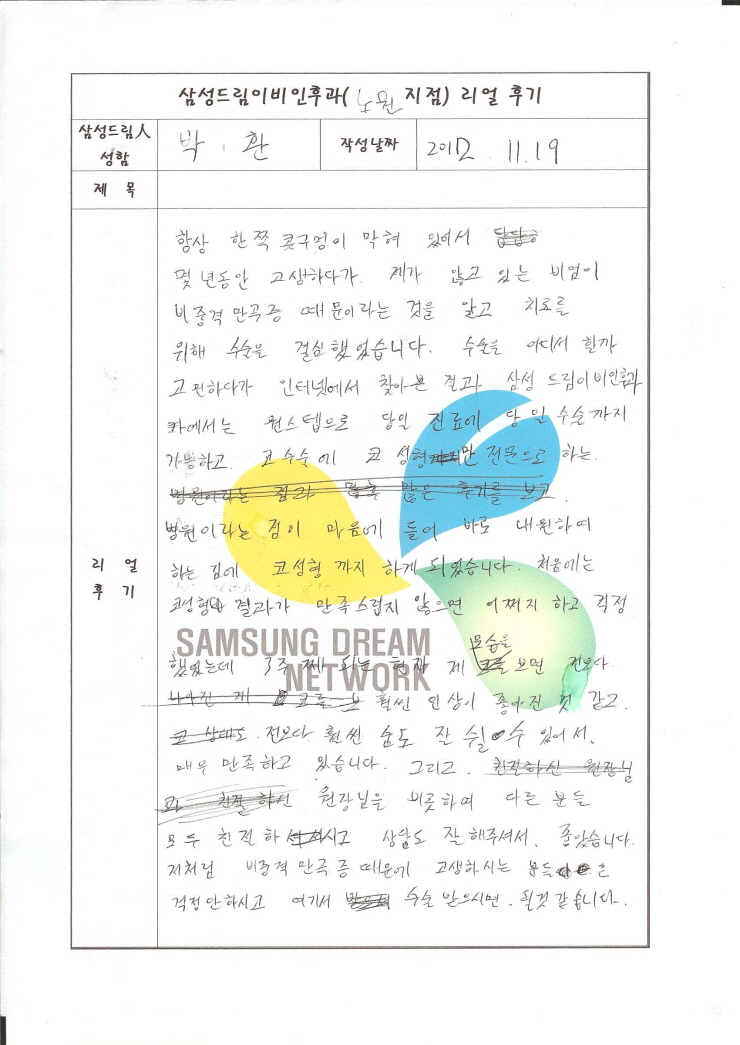 삼성드림이비인후과(노원지점) 리얼 후기
삼성드림人 성함
박 환
작성날짜
2012. 11. 19
제 목
리 얼 후 기
항상 한쪽 콧구멍이 막혀 있어서 답답
몇 년동안 고생하다가. 제가 앓고 있는 비염이
비중격 만곡증 때문이라는 것을 알고 치료를
위해 수술을 결심했었습니다. 수술을 어디서 할까
고민하다가 인터넷에서 찾아본 결과 삼성드림이비인후과
에서는 원스텝으로 당일 진료에 당일 수술까지
가능하고. 코수술에 코 성형만 전문으로 하는.
병원이라는 점과 많은 후기를 보고.
병원이라는 점이 마음에 들어 바로 내원하여
하는 김에 코성형까지 하게 되었습니다. 처음에는
코성형 결과가 만족스럽지 않으면 어쩌지 하고 걱정
SAMSUNG DREAM NETWORK
했었는데 3주 째 되는 현재 제 모습을 보면 전보다
나아진 게 코를 훨씬 인상이 좋아진 것 같고.
코 상태도 전보다 훨씬 숨도 잘 쉴 수 있어서.
매우 만족하고 있습니다. 그리고. 친절하신 원장님
과 친절하신 원장님을 비롯하여 다른 분들
모두 친절하시고 상담도 잘 해주셔서. 좋았습니다.
저처럼 비중격 만곡증 때문에 고생하시는 분들은
걱정안하시고 여기서 수술 받으시면. 될것 같습니다.